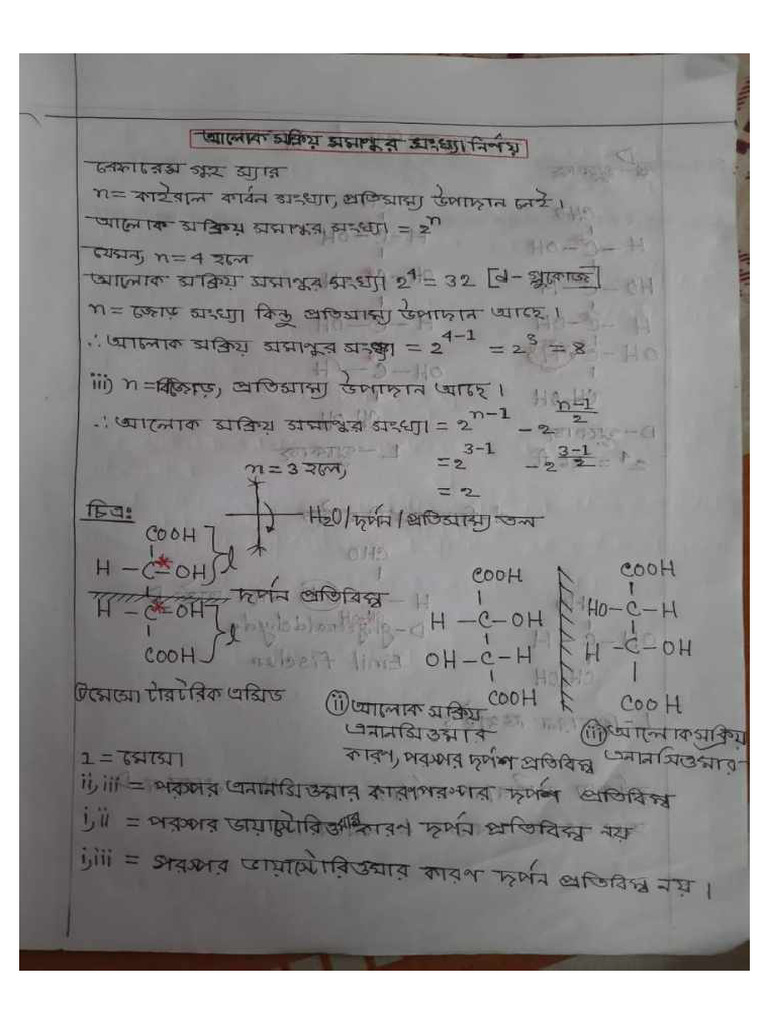 আলোক সক্রিয় সমাণুর সংখ্যা নির্ণয়
রেফারেন্স গুহ স্যার
n = কাইরাল কার্বন সংখ্যা, প্রতিসাম্য উপাদান নেই।
আলোক সক্রিয় সমাণুর সংখ্যা = 2^n
যেমন, n = 4 হলে
আলোক সক্রিয় সমাণুর সংখ্যা 2^4 = 32 [d - গ্লুকোজ]
n = জোড় সংখ্যা কিন্তু প্রতিসাম্য উপাদান আছে।
∴ আলোক সক্রিয় সমাণুর সংখ্যা = 2^4-1 = 2^3 = 8
iii) n = বিজোড়, প্রতিসাম্য উপাদান আছে।
∴ আলোক সক্রিয় সমাণুর সংখ্যা = 2^n-1 - 2^n-1/2
n = 3 হলে, = 2^3-1 - 2^3-1/2
= 2
চিত্র: H2O/দর্পন/প্রতিসাম্য তল
COOH
H - C* - OH } l
দর্পন প্রতিবিম্ব
H - C* - OH } l
COOH
i মেসো টারটারিক এসিড
COOH
H - C - OH
OH - C - H
COOH
ii আলোক সক্রিয়
এনানসিওমার
কারণ, পরস্পর দর্পণ প্রতিবিম্ব
COOH
HO - C - H
H - C - OH
COOH
iii আলোক সক্রিয়
এনানসিওমার
1 = মেসো
ii, iii = পরস্পর এনানসিওমার কারণ পরস্পর দর্পণ প্রতিবিম্ব
i, ii = পরস্পর ডায়াস্টেরিওমার কারণ দর্পন প্রতিবিম্ব নয়
i, iii = পরস্পর ডায়াস্টেরিওমার কারণ দর্পন প্রতিবিম্ব নয়।